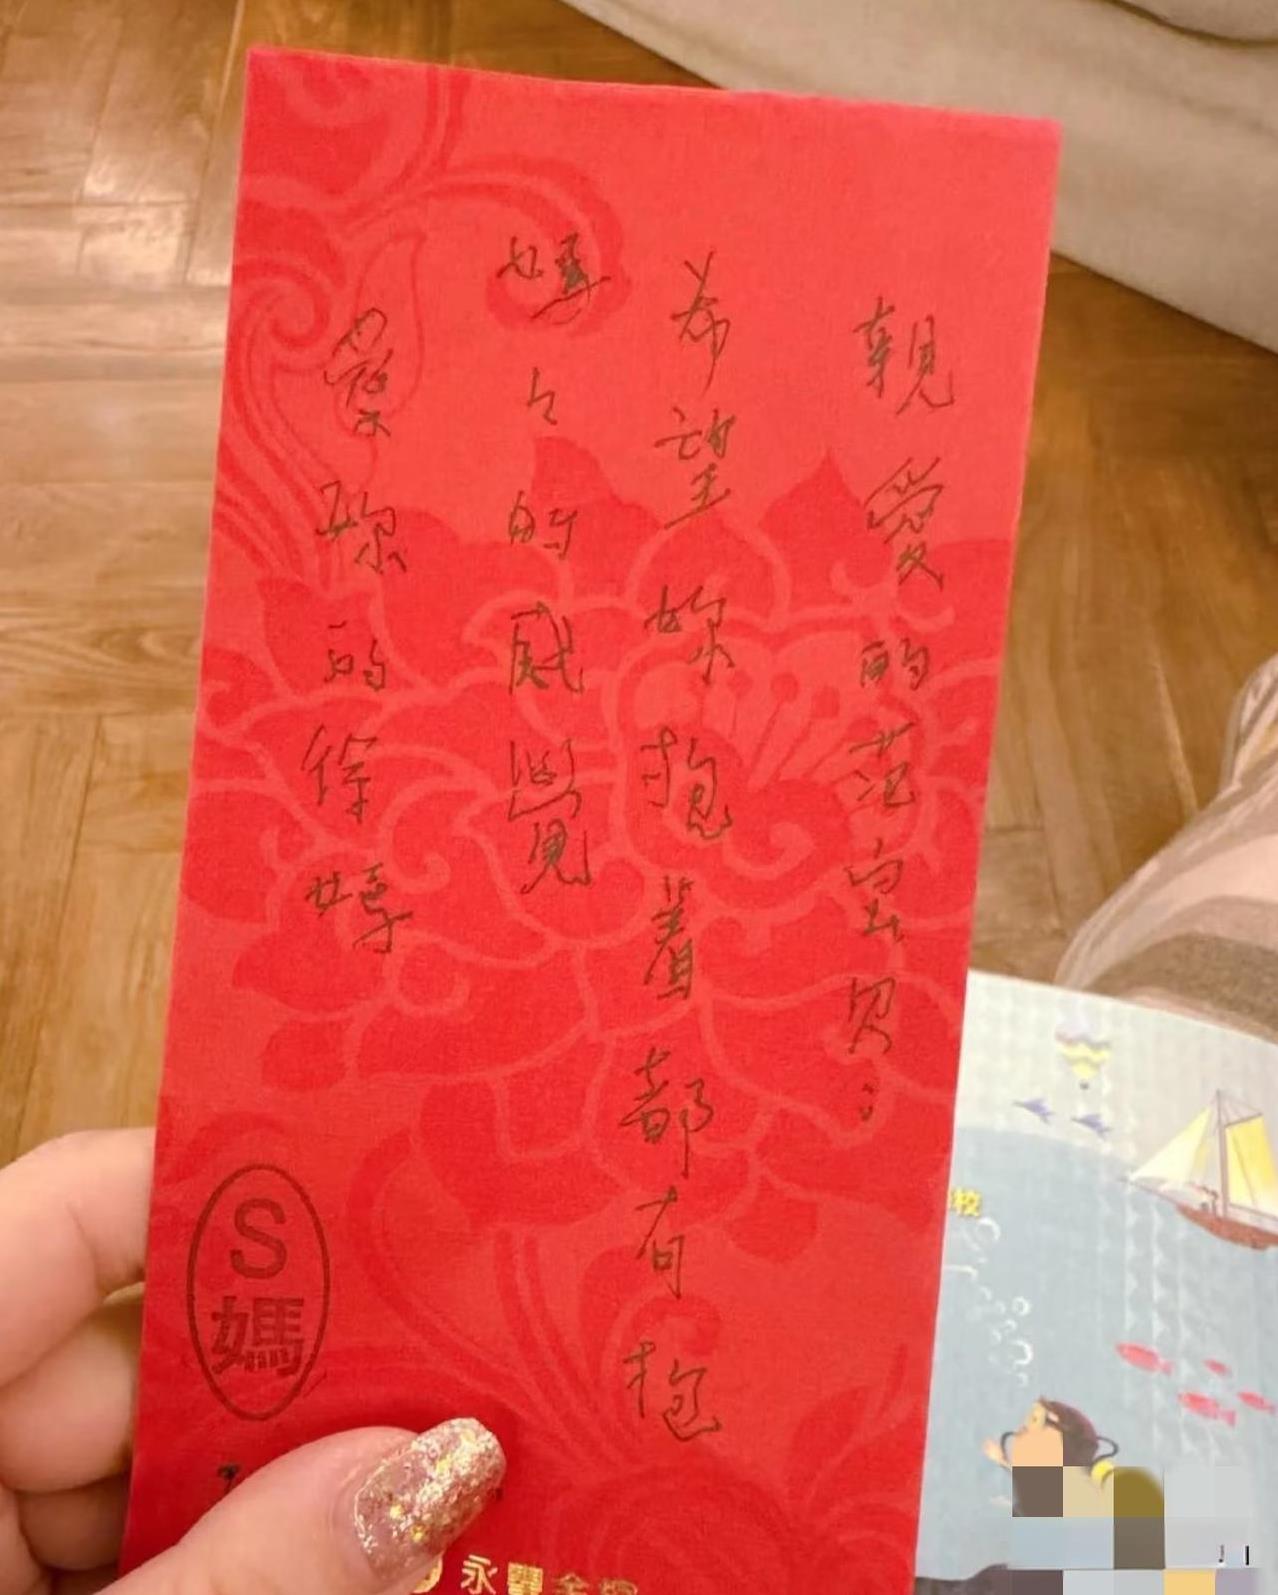 親愛的范宝贝：
希望妳抱着都有抱
媽々的感覺
愛妳的徐媽
S
媽
永豐金控
校